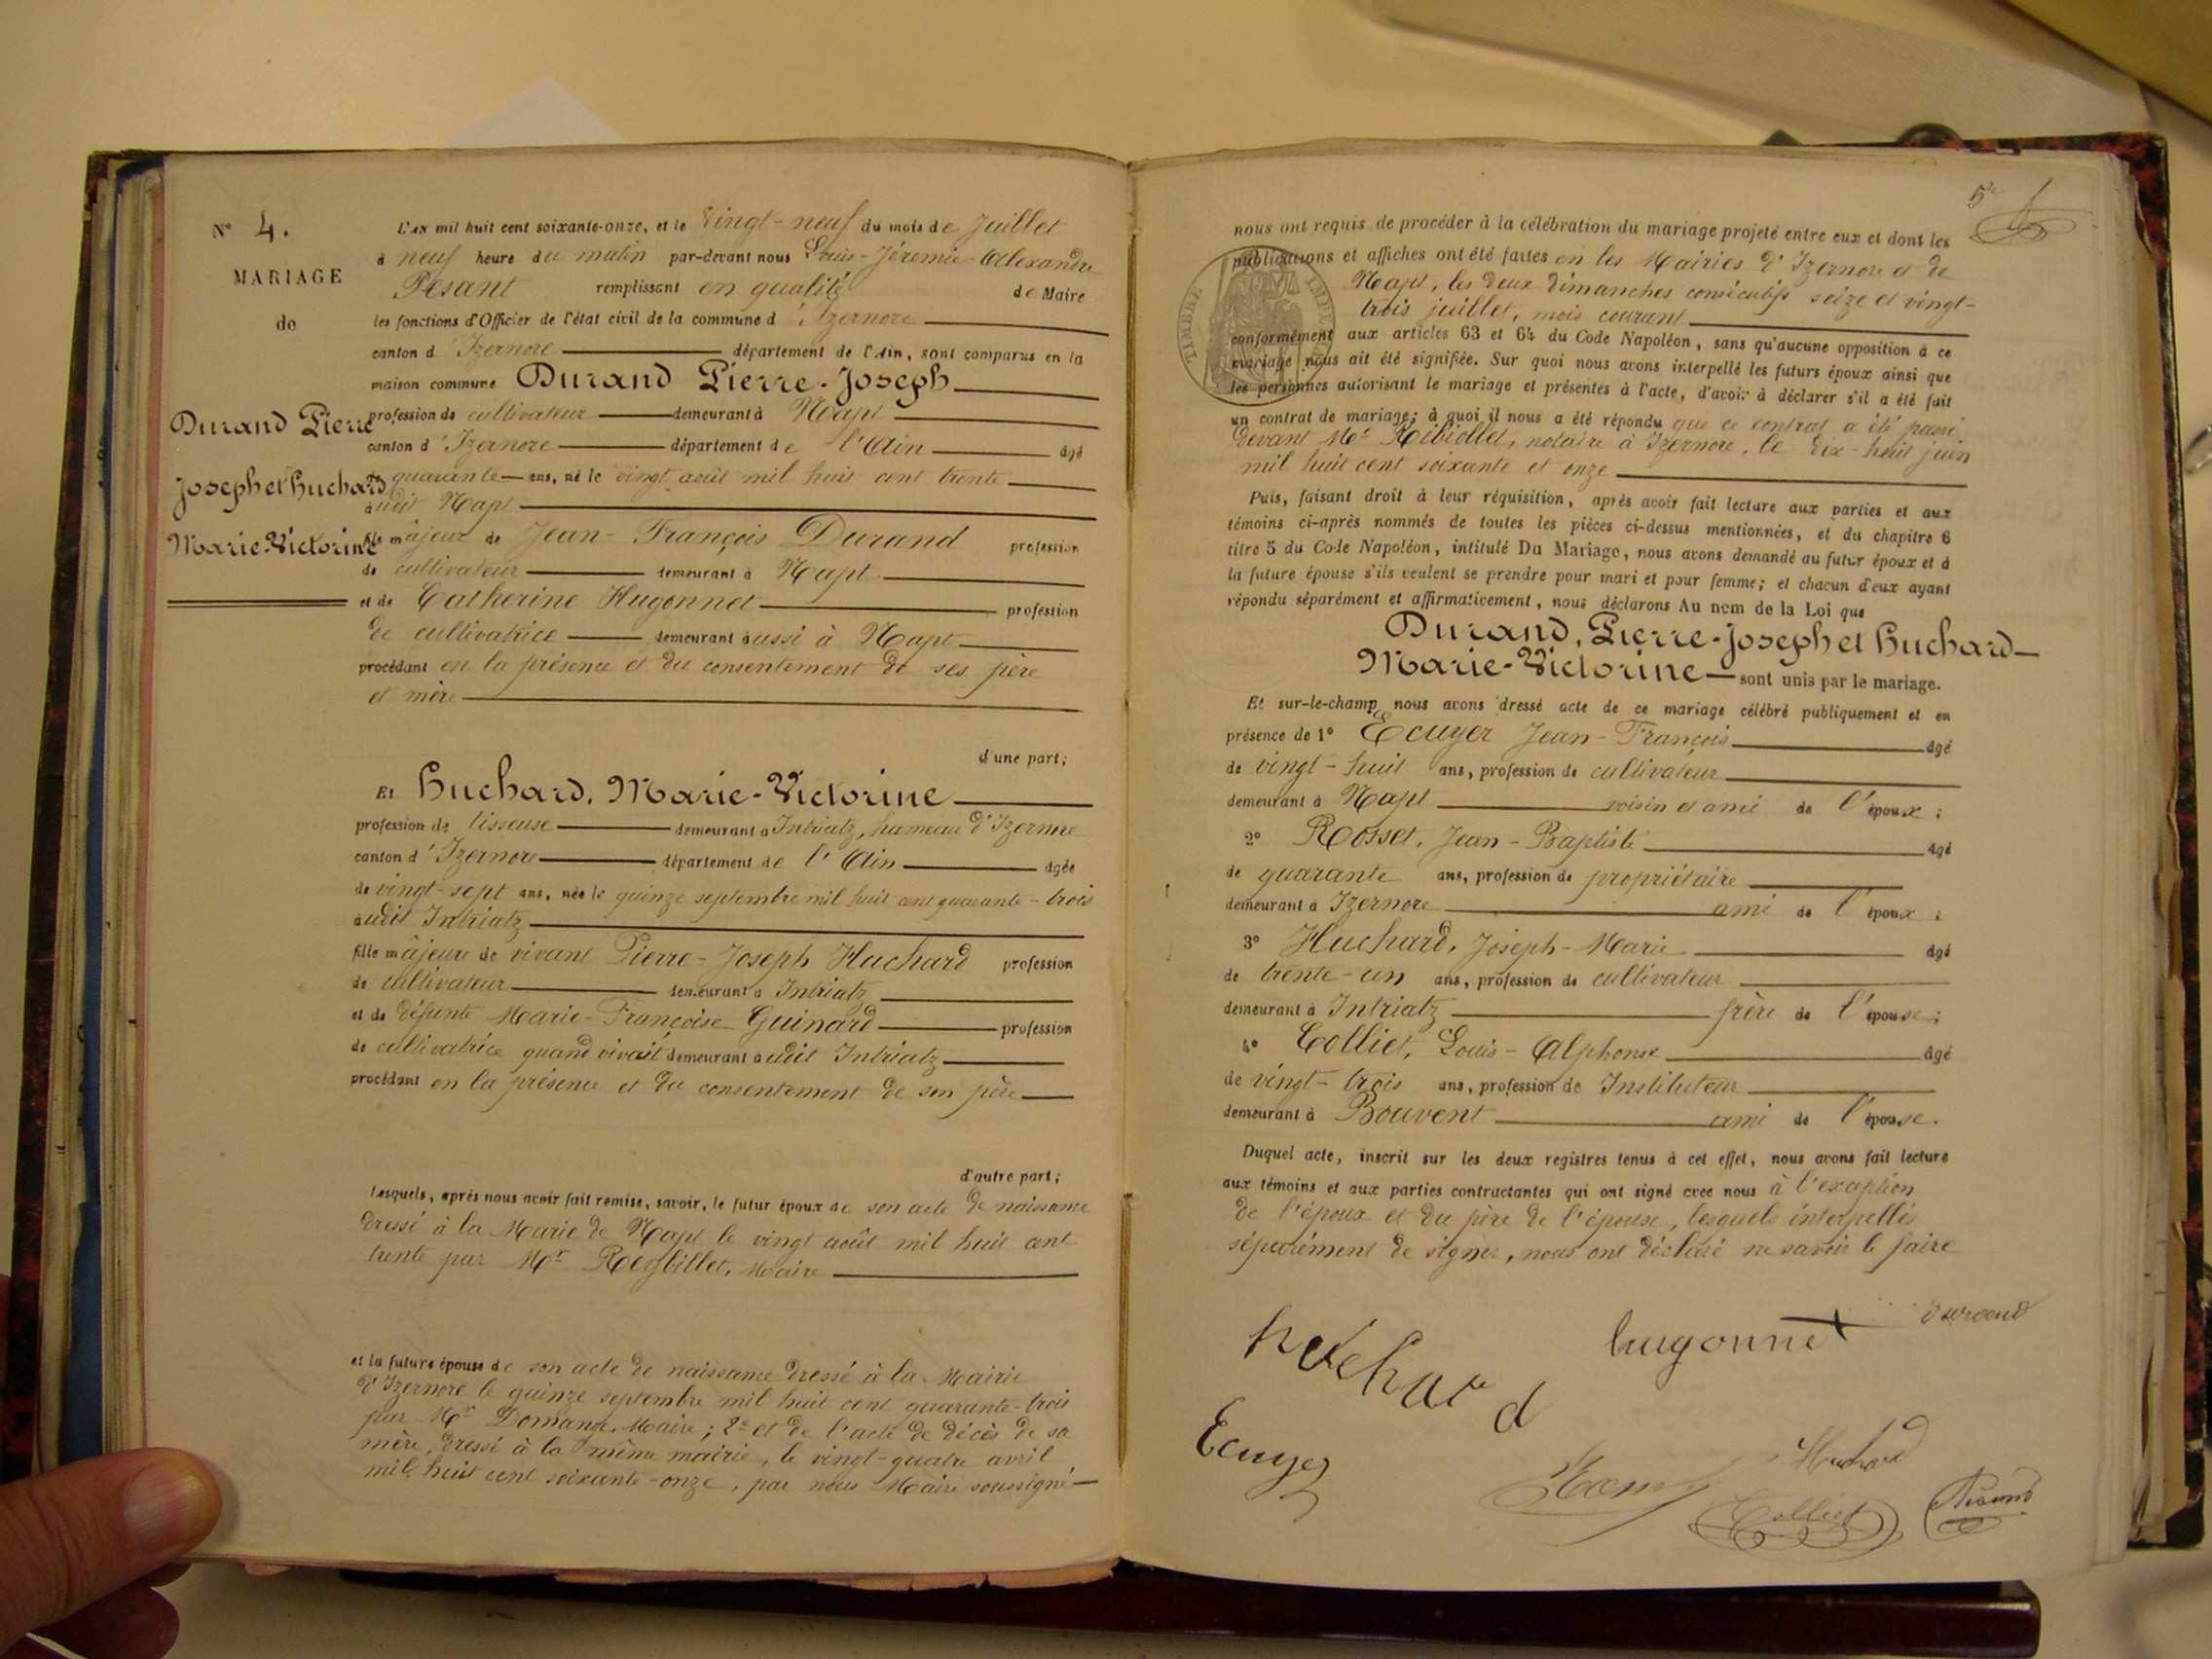 N° 4.
MARIAGE
de
Durand Pierre
Joseph et Huchard
Marie-Victorine
L'an mil huit cent soixante-onze, et le vingt-neuf du mois de Juillet
à neuf heure du matin par-devant nous Louis-Jéremie Alexandre
Pesant remplissant en qualité de Maire
les fonctions d'Officier de l'état civil de la commune d'Izernore
canton d'Izernore département de l'Ain, sont comparus en la
maison commune Durand Pierre-Joseph
profession de cultivateur demeurant à Napt
canton d'Izernore département de l'Ain âgé
de quarante ans, né le vingt août mil huit cent trente
audit Napt
fils majeur de Jean-François Durand profession
de cultivateur demeurant à Napt
et de Catherine Hugonnet profession
de cultivatrice demeurant aussi à Napt
procédant en la présence et du consentement de ses père
et mère
d'une part;
Et Huchard, Marie-Victorine
profession de tisseuse demeurant à Intriatz, hameau d'Izernore
canton d'Izernore département de l'Ain âgée
de vingt-sept ans, née le quinze septembre mil huit cent quarante-trois
audit Intriatz
fille majeure de vivant Pierre-Joseph Huchard profession
de cultivateur demeurant à Intriatz
et de défunte Marie-Françoise Guinard profession
de cultivatrice quand vivait demeurant audit Intriatz
procédant en la présence et du consentement de son père
d'autre part;
Lesquels, après nous avoir fait remise, savoir, le futur époux de son acte de naissance
dressé à la Mairie de Napt le vingt août mil huit cent
trente par Mr Reybillet, Maire
et la future épouse de son acte de naissance dressé à la Mairie
d'Izernore le quinze septembre mil huit cent quarante-trois
par Mr Maire; 2° et de l'acte de décès de sa
mère, dressé à la même mairie, le vingt-quatre avril
mil huit cent soixante-onze, par nous Maire soussigné
5e
TIMBRE IMPE
nous ont requis de procéder à la célébration du mariage projeté entre eux et dont les
publications et affiches ont été faites en les Mairies d'Izernore et de
Napt, les deux dimanches consécutifs seize et vingt-
trois juillet, mois courant
conformément aux articles 63 et 64 du Code Napoléon, sans qu'aucune opposition à ce
mariage nous ait été signifiée. Sur quoi nous avons interpellé les futurs époux ainsi que
les personnes autorisant le mariage et présentes à l'acte, d'avoir à déclarer s'il a été fait
un contrat de mariage; à quoi il nous a été répondu que ce contrat a été passé
devant Me Rebiollet, notaire à Izernore, le dix-huit juin
mil huit cent soixante et onze
Puis, faisant droit à leur réquisition, après avoir fait lecture aux parties et aux
témoins ci-après nommés de toutes les pièces ci-dessus mentionnées, et du chapitre 6
titre 5 du Code Napoléon, intitulé Du Mariage, nous avons demandé au futur époux et à
la future épouse s'ils veulent se prendre pour mari et pour femme; et chacun d'eux ayant
répondu séparément et affirmativement, nous déclarons Au nom de la Loi que
Durand, Pierre-Joseph et Huchard
Marie-Victorine sont unis par le mariage.
Et sur-le-champ nous avons dressé acte de ce mariage célébré publiquement et en
présence de 1° Ecuyer Jean-François âgé
de vingt-huit ans, profession de cultivateur
demeurant à Napt voisin et ami de l'époux;
2° Rosset, Jean-Baptiste âgé
de quarante ans, profession de propriétaire
demeurant à Izernore ami de l'époux;
3° Huchard, Joseph-Marie âgé
de trente-un ans, profession de cultivateur
demeurant à Intriatz frère de l'épouse;
4° Colliet, Louis-Alphonse âgé
de vingt-trois ans, profession de Instituteur
demeurant à Bouvent ami de l'épouse.
Duquel acte, inscrit sur les deux registres tenus à cet effet, nous avons fait lecture
aux témoins et aux parties contractantes qui ont signé avec nous à l'exception
de l'époux et du père de l'épouse, lesquels interpellés
séparément de signer, nous ont déclaré ne savoir le faire
huchard hugonnet durand
Ecuyer Huchard
Colliet Pesant